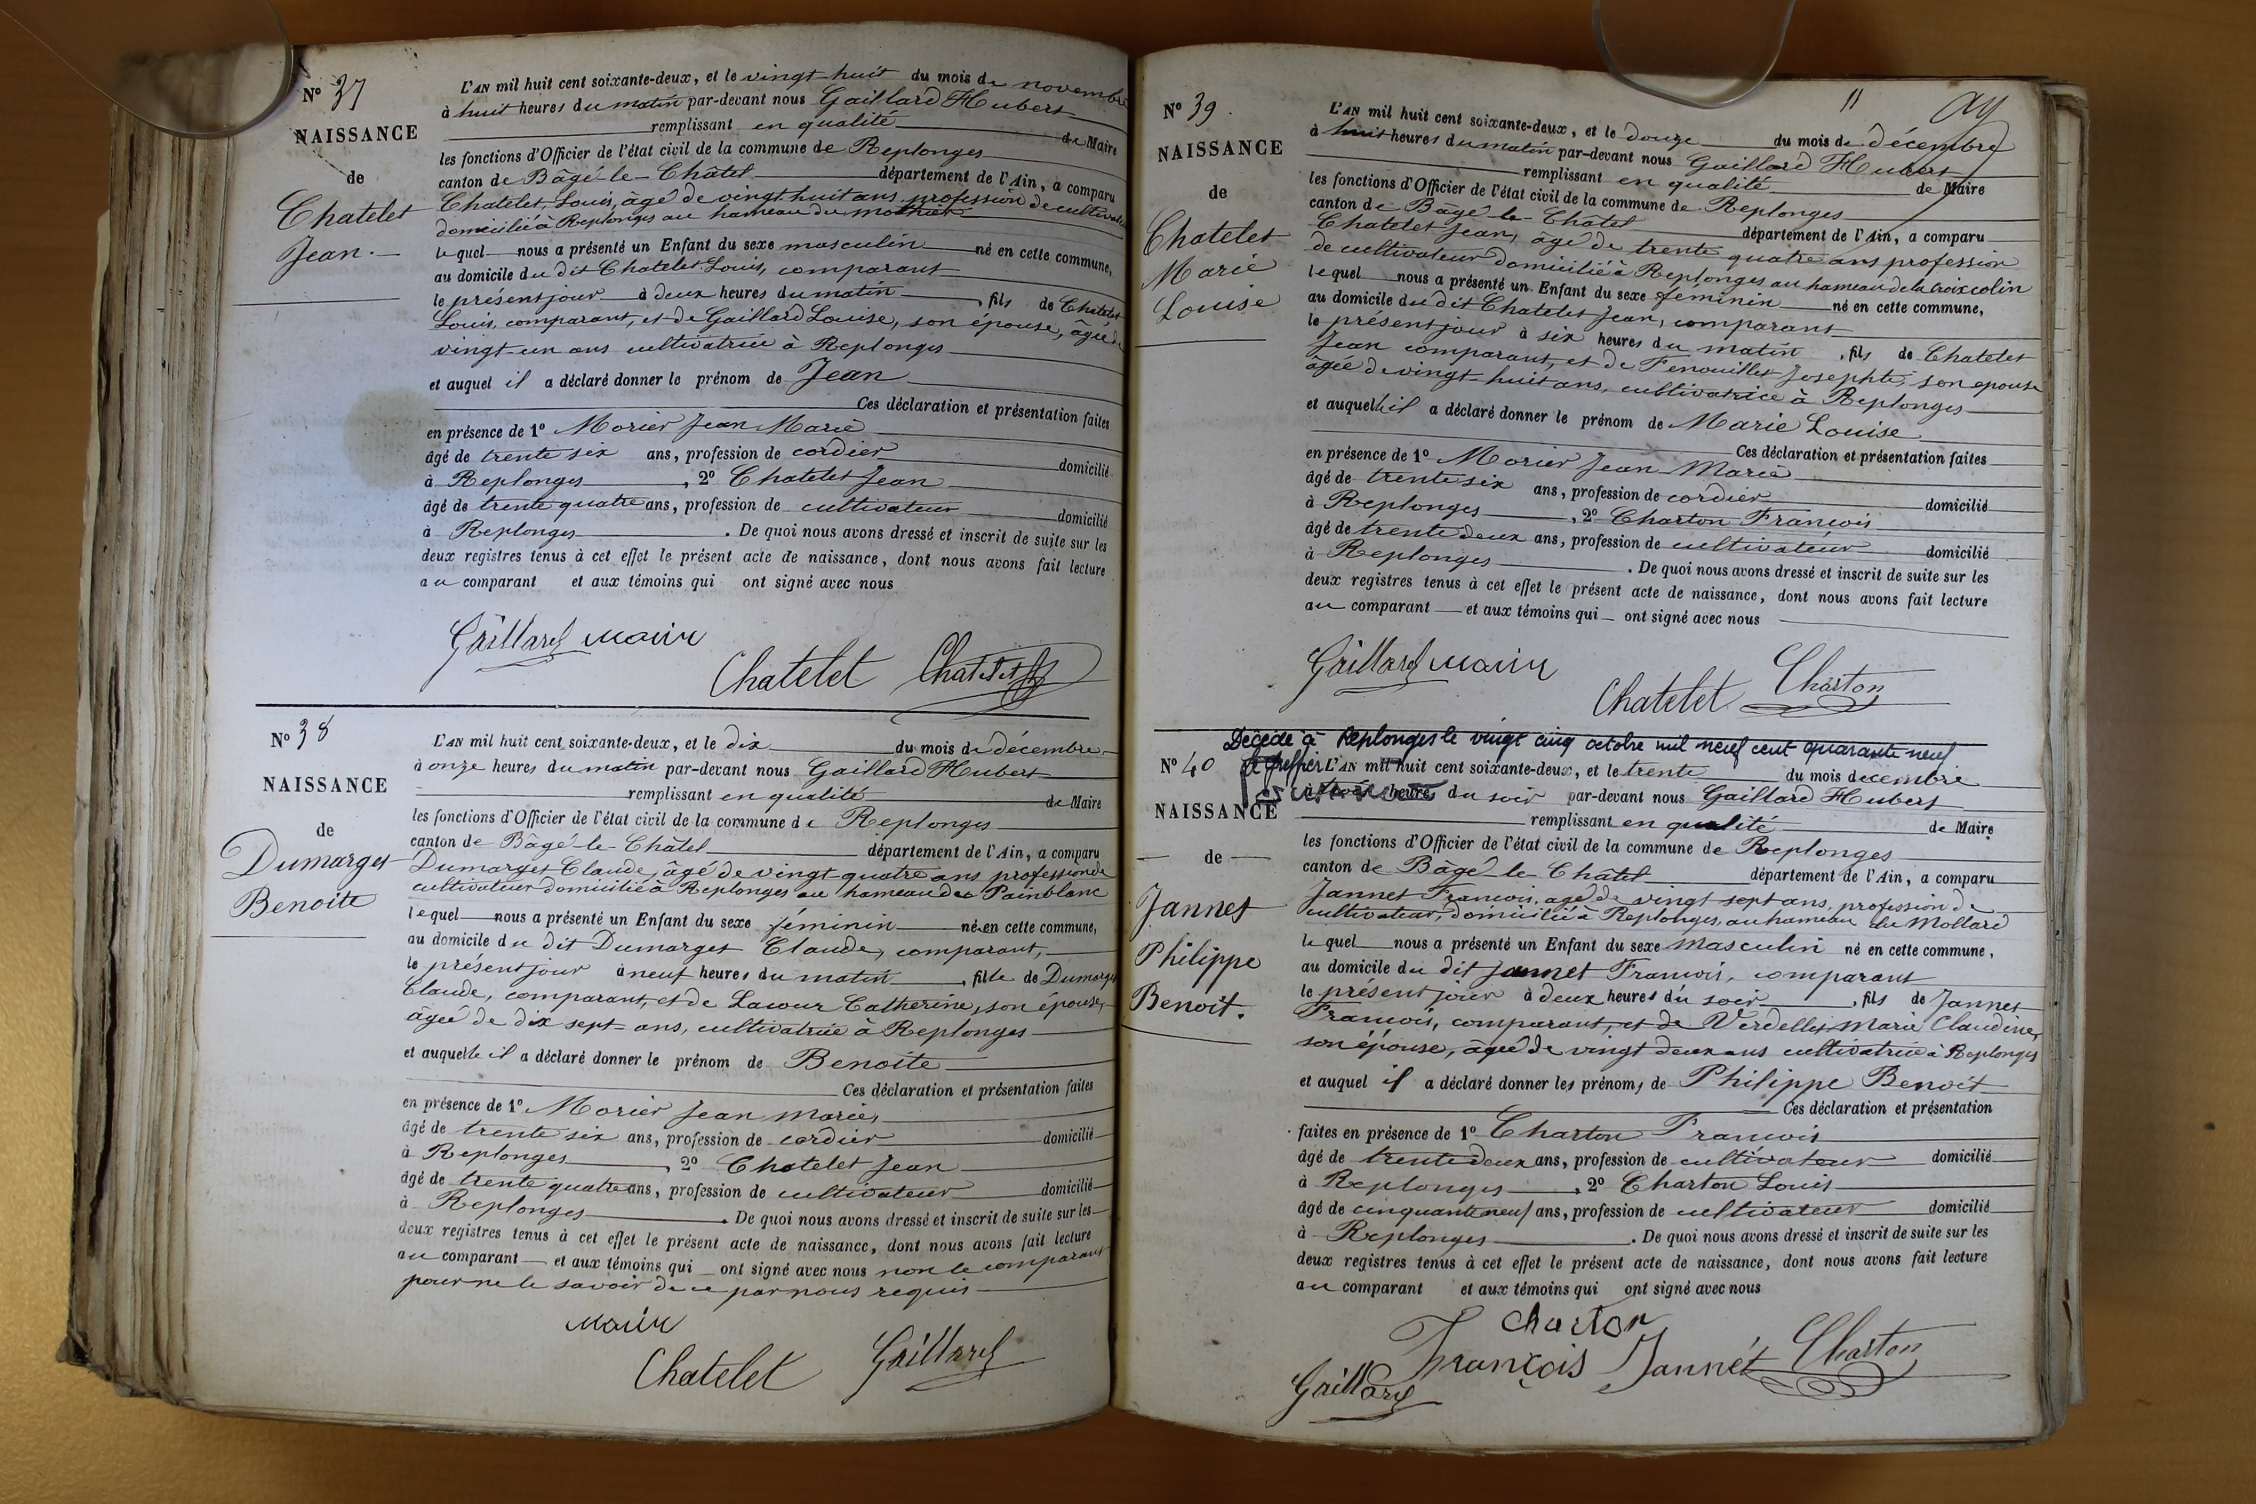 N° 37
NAISSANCE
de
Chatelet
Jean.
L'AN mil huit cent soixante-deux, et le vingt-huit du mois de novembre
à huit heures du matin par-devant nous Gaillard Hubert
remplissant en qualité de Maire
les fonctions d'Officier de l'état civil de la commune de Replonges
canton de Bâgé-le-Châtel département de l'Ain, a comparu
Chatelet Louis, âgé de vingt huit ans profession de cultivateur
domicilié à Replonges au hameau du
le quel nous a présenté un Enfant du sexe masculin né en cette commune,
au domicile du dit Chatelet Louis, comparant
le présent jour à deux heures du matin, fils de Chatelet
Louis, comparant, et de Gaillard Louise, son épouse, âgée de
vingt-un ans cultivatrice à Replonges
et auquel il a déclaré donner le prénom de Jean
Ces déclaration et présentation faites
en présence de 1° Morier Jean Marie
âgé de trente six ans, profession de cordier domicilié
à Replonges, 2° Chatelet Jean
âgé de trente quatre ans, profession de cultivateur domicilié
à Replonges. De quoi nous avons dressé et inscrit de suite sur les
deux registres tenus à cet effet le présent acte de naissance, dont nous avons fait lecture
au comparant et aux témoins qui ont signé avec nous
Gaillard maire
Chatelet Chatelet
N° 38
NAISSANCE
de
Dumarget
Benoite
L'AN mil huit cent soixante-deux, et le dix du mois de décembre
à onze heures du matin par-devant nous Gaillard Hubert
remplissant en qualité de Maire
les fonctions d'Officier de l'état civil de la commune de Replonges
canton de Bâgé-le-Châtel département de l'Ain, a comparu
Dumarget Claude, âgé de vingt quatre ans profession de
cultivateur domicilié à Replonges au hameau de Painblanc
le quel nous a présenté un Enfant du sexe féminin né en cette commune,
au domicile du dit Dumarget Claude, comparant,
le présent jour à neuf heures du matin, fille de Dumarget
Claude, comparant, et de Lacour Catherine, son épouse,
âgée de dix sept ans, cultivatrice à Replonges
et auquelle il a déclaré donner le prénom de Benoite
Ces déclaration et présentation faites
en présence de 1° Morier Jean Marie,
âgé de trente six ans, profession de cordier domicilié
à Replonges, 2° Chatelet Jean
âgé de trente quatre ans, profession de cultivateur domicilié
à Replonges. De quoi nous avons dressé et inscrit de suite sur les
deux registres tenus à cet effet le présent acte de naissance, dont nous avons fait lecture
au comparant et aux témoins qui ont signé avec nous non le comparant
pour ne le savoir de ce par nous requis
maire
Chatelet Gaillard
11
N° 39
NAISSANCE
de
Chatelet
Marie
Louise
L'AN mil huit cent soixante-deux, et le douze du mois de décembre
à huit heures du matin par-devant nous Gaillard Hubert
remplissant en qualité de Maire
les fonctions d'Officier de l'état civil de la commune de Replonges
canton de Bâgé-le-Châtel département de l'Ain, a comparu
Chatelet Jean, âgé de trente quatre ans profession
de cultivateur domicilié à Replonges au hameau de la Croix colin
le quel nous a présenté un Enfant du sexe féminin né en cette commune,
au domicile du dit Chatelet Jean, comparant
le présent jour à six heures du matin, fils de Chatelet
Jean comparant, et de Fenouillet Josephte, son epouse
âgée de vingt-huit ans, cultivatrice à Replonges
et auquelle il a déclaré donner le prénom de Marie Louise
Ces déclaration et présentation faites
en présence de 1° Morier Jean-Marie
âgé de trente six ans, profession de cordier domicilié
à Replonges, 2° Charton Francois
âgé de trente deux ans, profession de cultivateur domicilié
à Replonges. De quoi nous avons dressé et inscrit de suite sur les
deux registres tenus à cet effet le présent acte de naissance, dont nous avons fait lecture
au comparant et aux témoins qui ont signé avec nous
Gaillard maire
Chatelet Charton
Décédé à Replonges le vingt cinq octobre mil neuf cent quarante neuf
Le Greffier
N° 40
NAISSANCE
de
Jannet
Philippe
Benoit.
L'AN mil huit cent soixante-deux, et le trente du mois decembre
à heures du soir par-devant nous Gaillard Hubert
remplissant en qualité de Maire
les fonctions d'Officier de l'état civil de la commune de Replonges
canton de Bâgé-le-Châtel département de l'Ain, a comparu
Jannet Francois, agé de vingt sept ans, profession de
cultivateur, domicilié à Replonges, au hameau du Mollard
le quel nous a présenté un Enfant du sexe masculin né en cette commune,
au domicile du dit Jannet Francois, comparant
le présent jour à deux heures du soir, fils de Jannet
Francois, comparant, et de Verdellet Marie Claudine,
son épouse, âgée de vingt deux ans cultivatrice à Replonges
et auquel il a déclaré donner les prénoms de Philippe Benoit
Ces déclaration et présentation
faites en présence de 1° Charton Francois
âgé de trente deux ans, profession de cultivateur domicilié
à Replonges, 2° Charton Louis
âgé de cinquante neuf ans, profession de cultivateur domicilié
à Replonges. De quoi nous avons dressé et inscrit de suite sur les
deux registres tenus à cet effet le présent acte de naissance, dont nous avons fait lecture
au comparant et aux témoins qui ont signé avec nous
Charton
François Jannet Charton
Gaillard